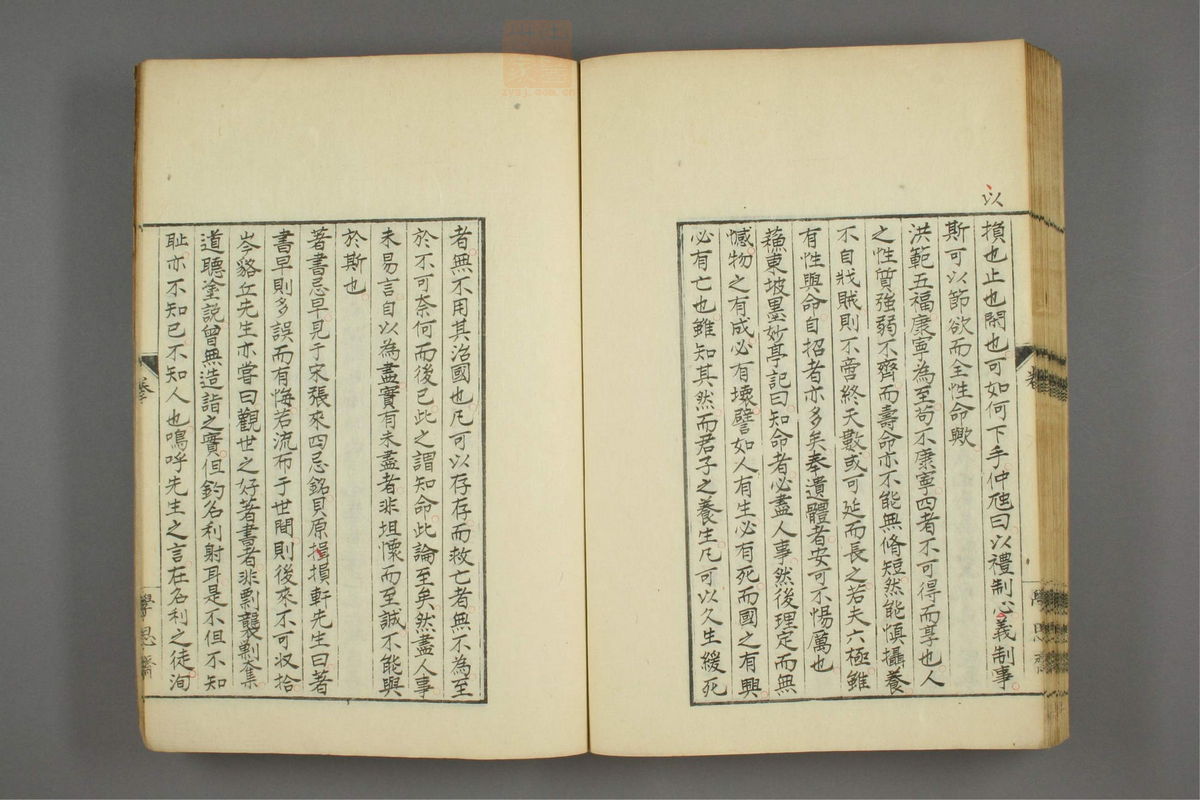 以
損也止也閉也可如何下手仲虺曰以禮制心義制事
斯可以節欲而全性命歟
洪範五福康寧為至苟不康寧四者不可得而享也人
之性質強弱不齊而壽命亦不能無脩短然能慎攝養
不自戕賊則不啻終天數或可延而長之若夫六極雖
有性與命自招者亦多矣奉遺體者安可不惕厲也
蘓東坡墨妙亭記曰知命者必盡人事然後理定而無
憾物之有成必有壞譬如人有生必有死而國之有興
必有亡也雖知其然而君子之養生凡可以久生緩死
者無不用其治國也凡可以存存而救亡者無不為至
於不可奈何而後已此之謂知命此論至矣然盡人事
未易言自以為盡實有未盡者非坦懷而至誠不能與
於斯也
著書忌早見于宋張來四忌銘貝原損損軒先生曰著
書早則多誤而有悔若流布于世間則後來不可収拾
岑貉丘先生亦嘗曰觀世之好著書者非剽襲剿奪
道聽塗說曾無造詣之實但釣名利射耳是不但不知
耻亦不知已不知人也鳴呼先生之言在名利之徒洵
學思齋